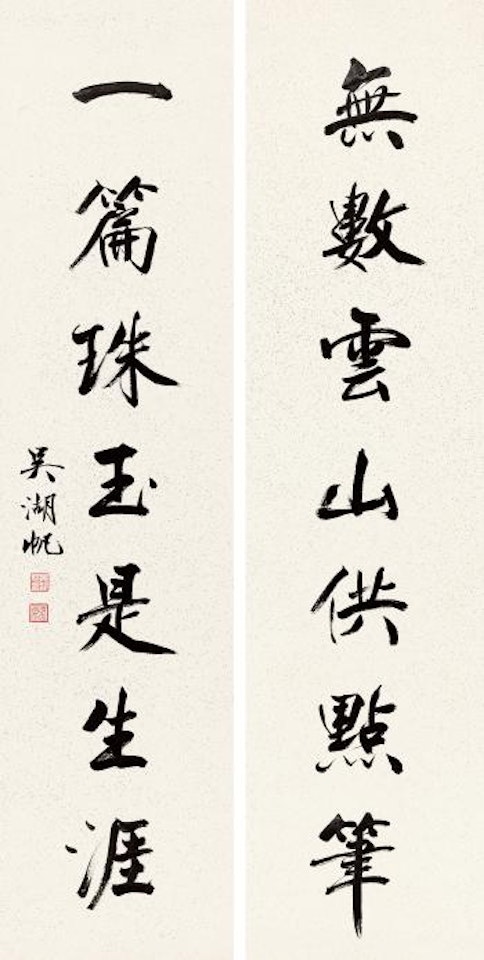 無數雲山供點筆
一篇珠玉是生涯
吳湖帆